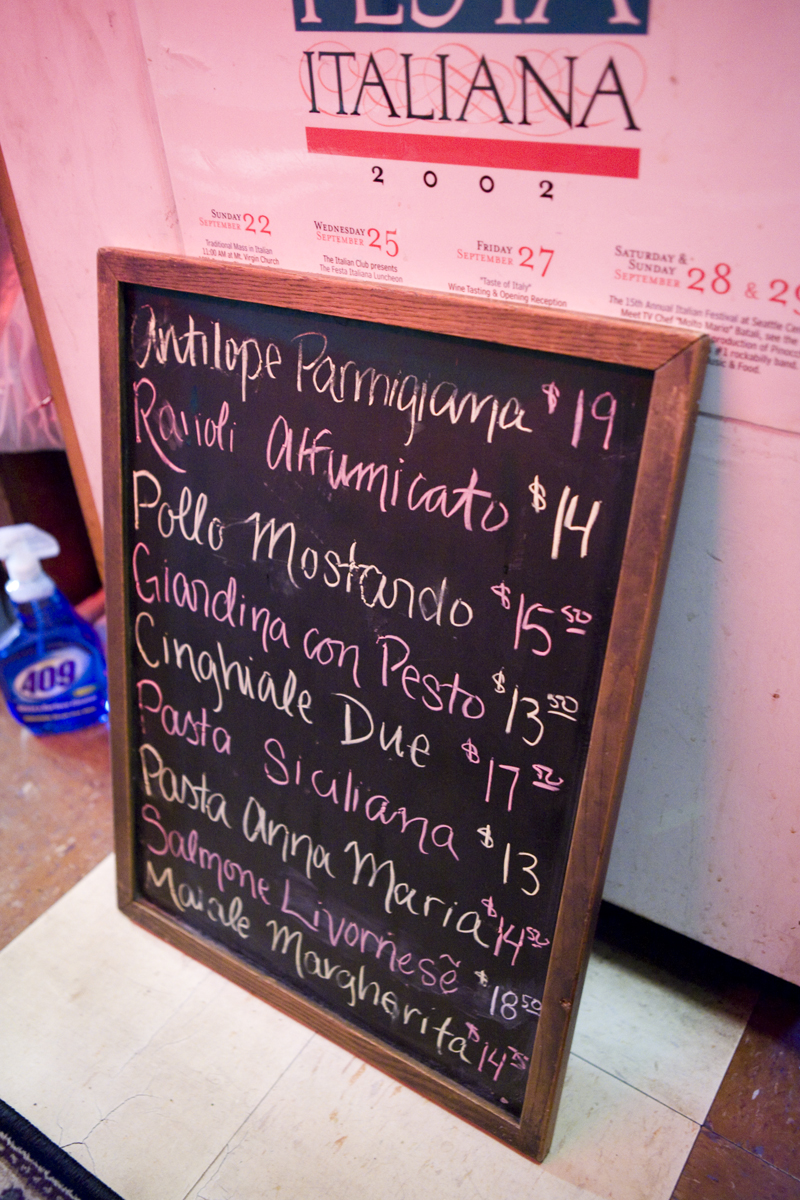 FESTA
ITALIANA
2002
SUNDAY
SEPTEMBER 22
Traditional Mass in Italian
11:00 AM at Mt. Virgin Church
WEDNESDAY
SEPTEMBER 25
The Italian Club presents
The Festa Italiana Luncheon
FRIDAY
SEPTEMBER 27
"Taste of Italy"
Wine Tasting & Opening Reception
SATURDAY &
SUNDAY
SEPTEMBER 28 & 29
The 15th Annual Italian Festival at Seattle Cen
Meet TV Chef "Molto Mario" Batali, see the
production of Pinocc
#1 rockabilly band,
Music & Food.
Antilope Parmigiana $19
Ravioli Affumicato $14
Pollo Mostardo $15 50
Giardina con Pesto $13 50
Cinghiale Due $17 50
Pasta Siciliana $13
Pasta Anna Maria $14 50
Salmone Livornese $18 50
Maiale Margherita $14 75
409